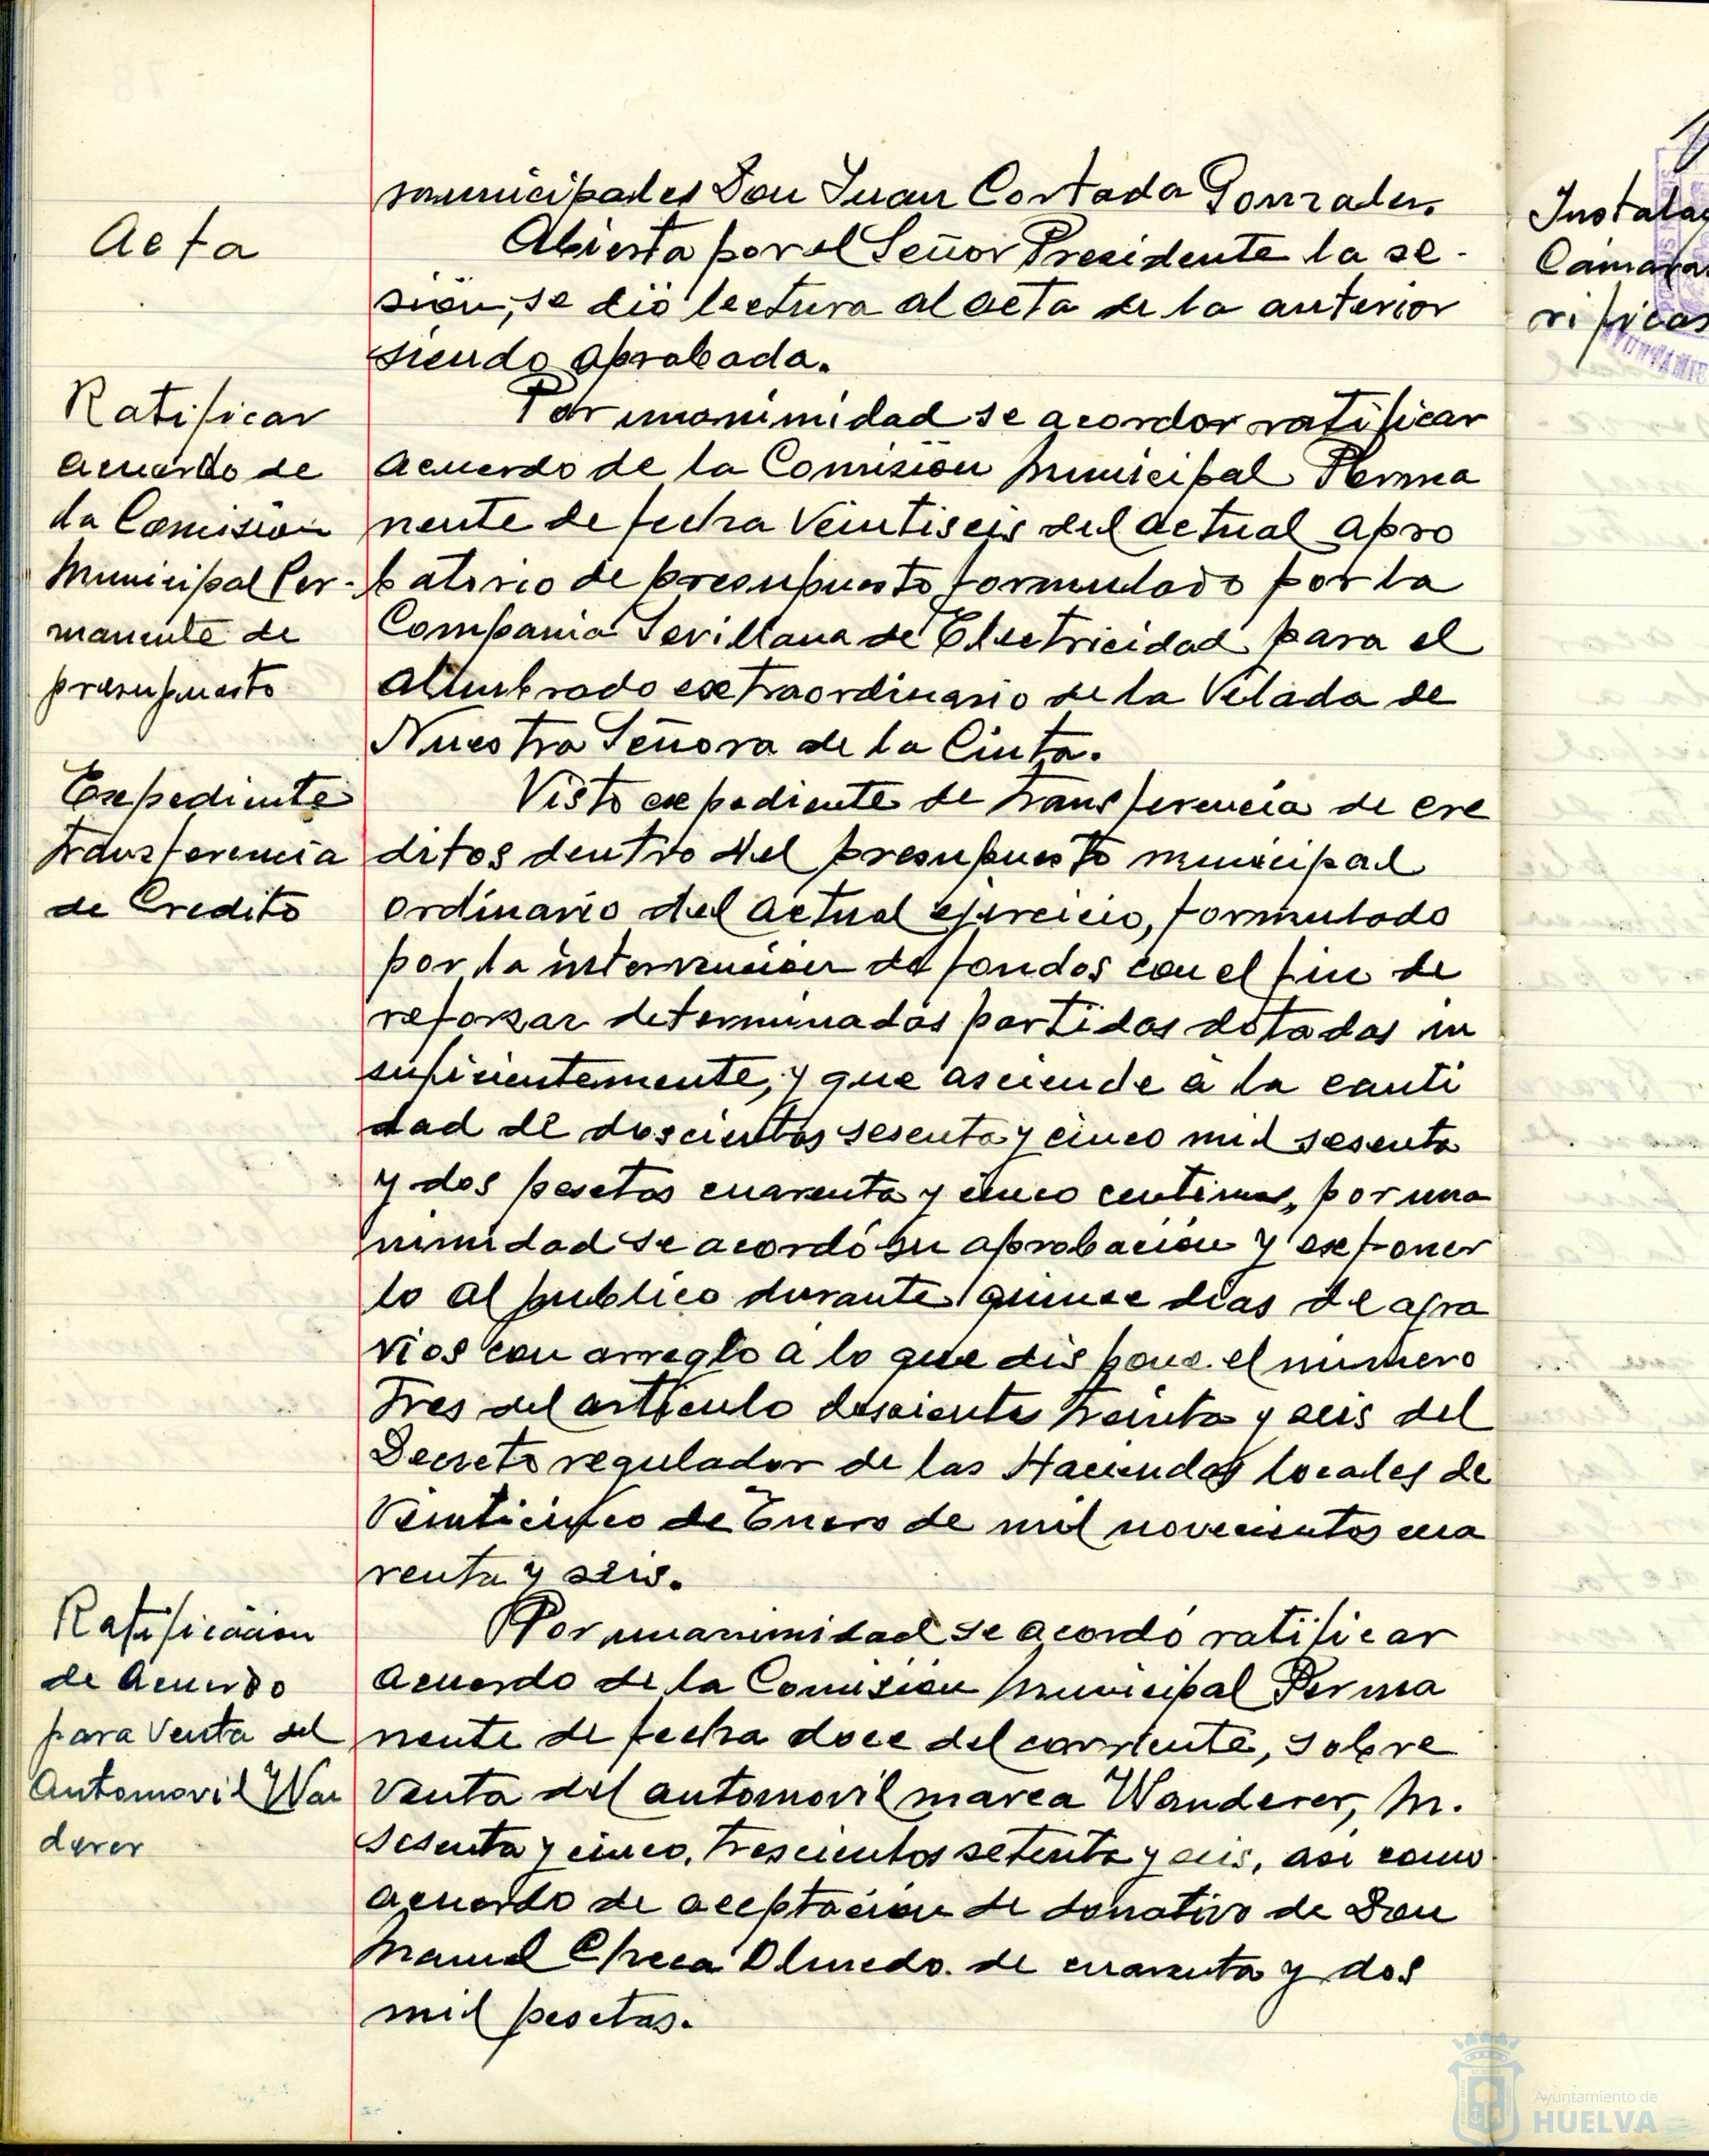 municipales Don Juan Cortada Gonzalez.
Acta
Abierta por el Señor Presidente la se-
sión, se dió lectura al acta de la anterior
siendo aprobada.
Ratificar
acuerdo de
la Comision
Municipal Per-
manente de
presupuesto
Por unanimidad se acordor ratificar
acuerdo de la Comision Municipal Perma
nente de fecha Veintiseis del actual apro
batorio de presupuesto formulado por la
Compania Sevillana de Electricidad para el
alumbrado extraordinario de la Velada de
Nuestra Señora de la Cinta.
Expediente
transferencia
de Credito
Visto expediente de transferencia de cre
ditos dentro del presupuesto municipal
ordinario del actual ejercicio, formulado
por la intervencion de fondos con el fin de
reforzar determinadas partidas dotadas in
suficientemente, y que asciende a la canti
dad de doscientas sesenta y cinco mil sesenta
y dos pesetas cuarenta y cinco centimos, por una
nimidad se acordó su aprobacion y exponer
lo al publico durante quince dias de agra
vios con arreglo a lo que dispone el numero
Tres del articulo doscientos treinta y seis del
Decreto regulador de las Haciendas locales de
Veinticinco de Enero de mil novecientos cua
renta y seis.
Ratificacion
de Acuerdo
para Venta del
Automovil Wan
derer
Por unanimidad se acordó ratificar
acuerdo de la Comision Municipal Perma
nente de fecha doce del corriente, sobre
Venta del automovil marca Wanderer, M.
sesenta y cinco, trescientos setenta y seis, asi como
acuerdo de aceptacion de donativo de Don
Manuel Checa Olmedo de cuarenta y dos
mil pesetas.
Instala
Camara
rificas
Ayuntamiento de
HUELVA